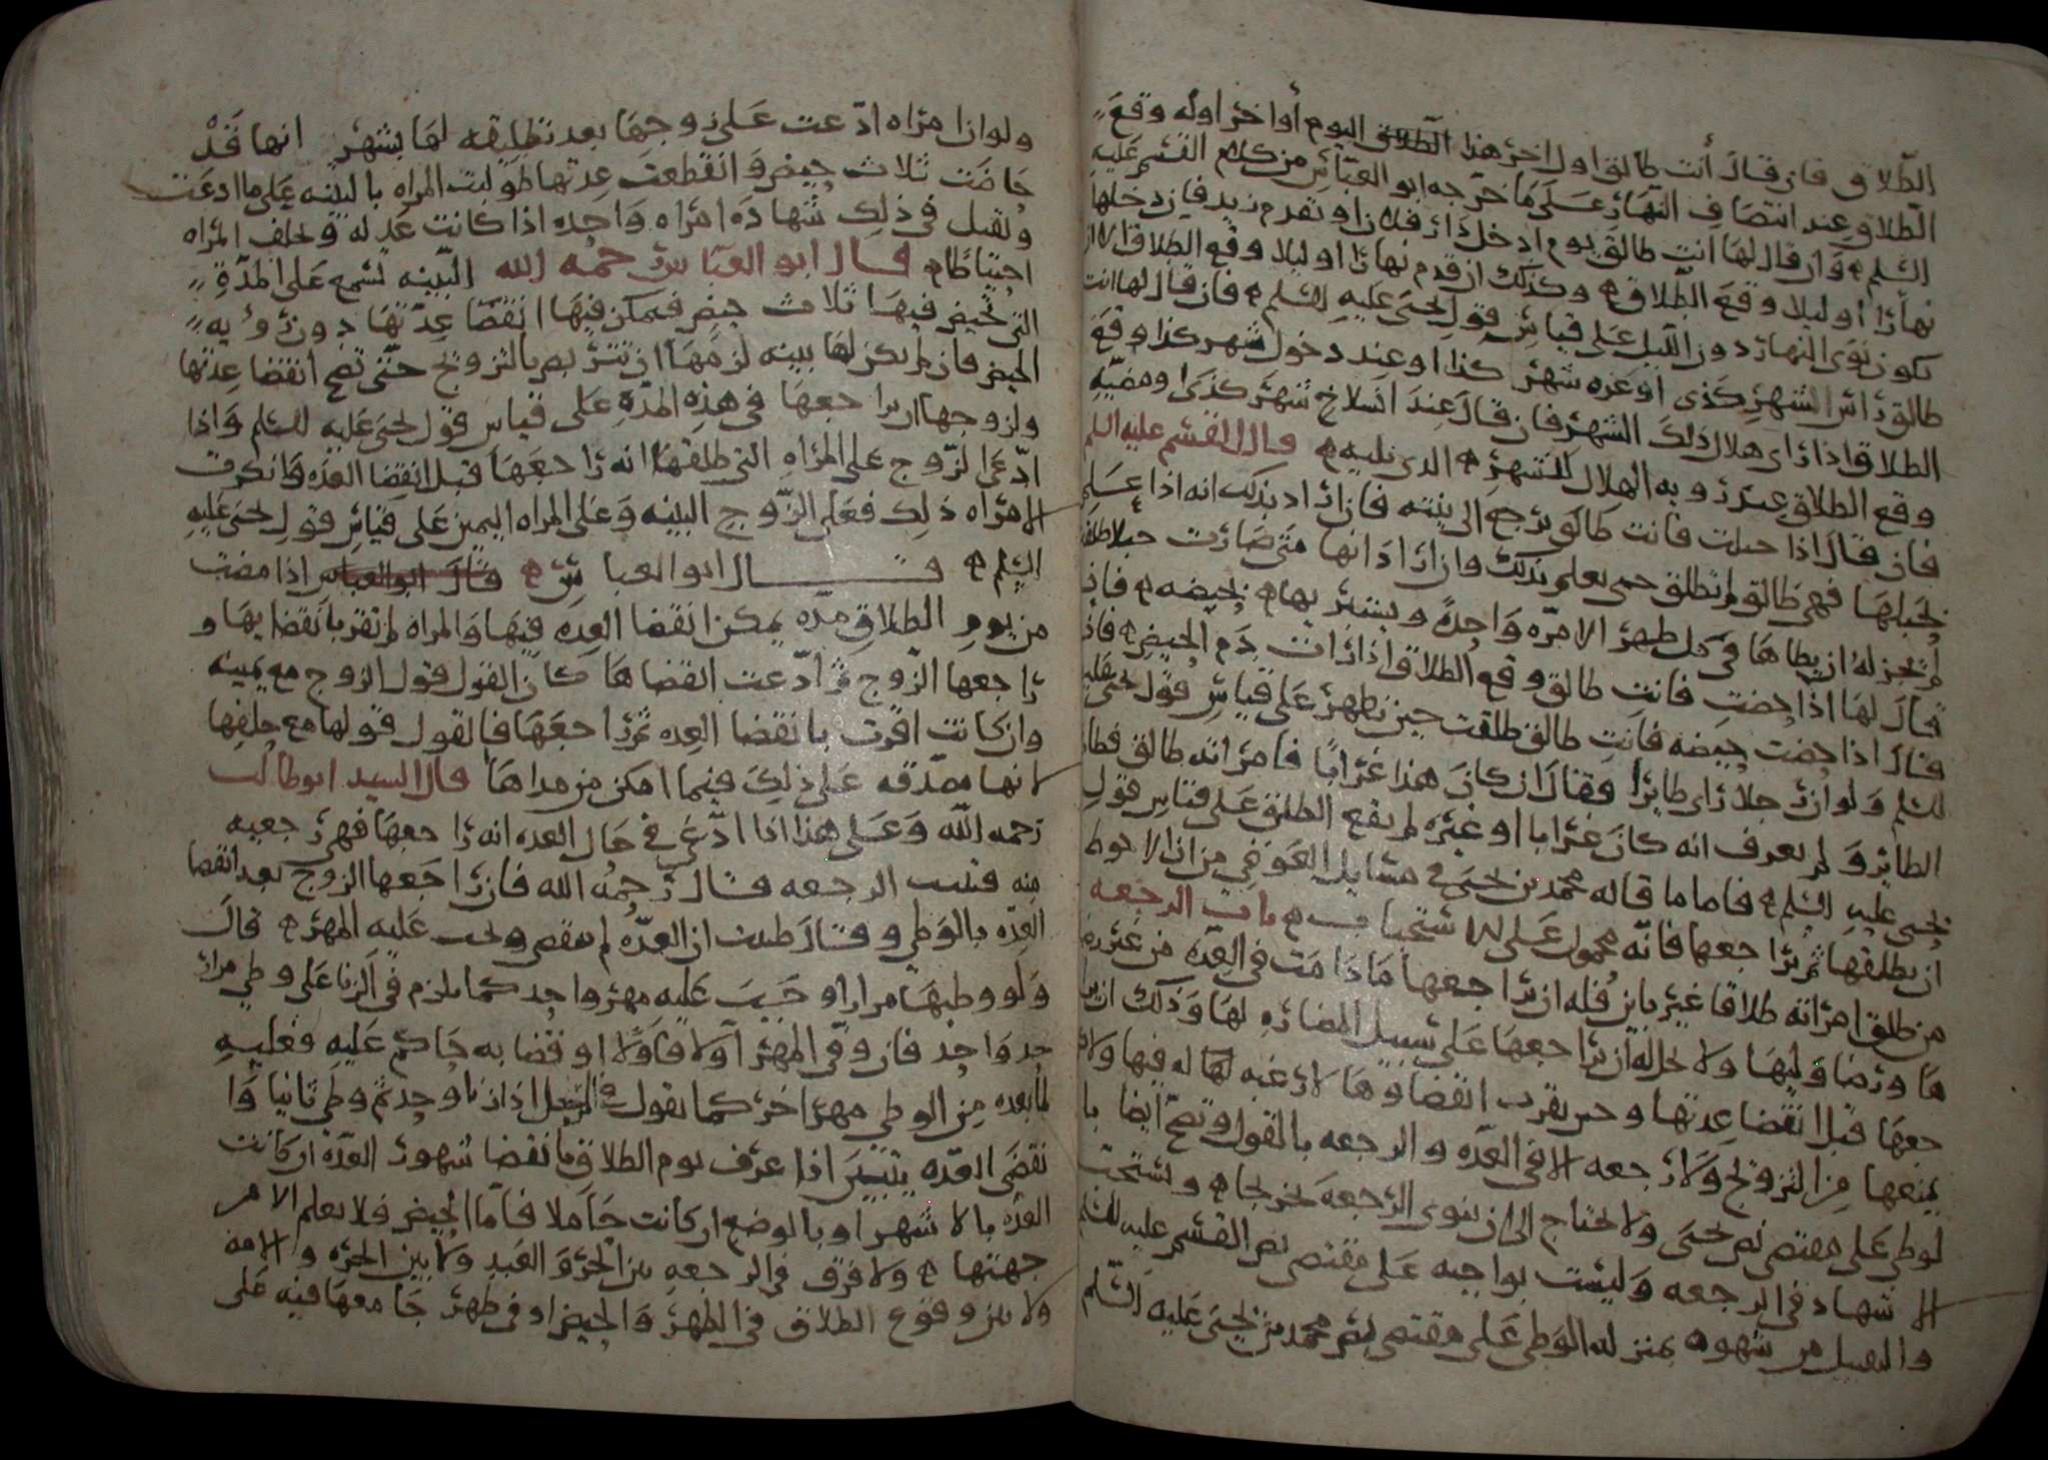 الطلاق فان قال أنت طالق اول اخر هذا اليوم أو اخر اوله وقع
الطلاق عند انتصاف النهار على ما خرجه ابو العباس من كلام القسم عليه
السلم وان قال لها انت طالق يوم ادخل دار فلان او تقدم زيد فان دخلها
نهارا او ليلا وقع الطلاق وكذلك ان قدم نهارا او ليلا وقع الطلاق الا ان
يكون نوى النهار دون الليل على قياس قول يحيى عليه السلم فان قال لها انت
طالق راس الشهر كذى او غره شهر كذا او عند دخول شهر كذا وقع
الطلاق اذا راى هلال ذلك الشهر فان قال عند انسلاخ شهر كذى او مضيه
وقع الطلاق عند رويه الهلال للشهر الذي يليه قال القسم عليه السلم
فان قال اذا حبلت فانت طالق يرجع الى نيته فان اراد بذلك انه اذا علم
بحبلها فهي طالق لم تطلق حتى يعلم بذلك وان اراد انها متى صارت حبلا طلقت
لم يجز له ان يطاها في كل طهر الا مره واحدة ويستبريها بحيضه فان
قال لها اذا حضت فانت طالق وقع الطلاق اذا رات دم الحيض فان
قال اذا حضت حيضه فانت طالق طلقت حين تطهر على قياس قول يحيى عليه
السلم ولو ان رجلا راى طايرا فقال ان كان هذا غرابا فامراته طالق فطار
الطاير ولم يعرف انه كان غرابا او غيره لم يقع الطلاق على قياس قول
يحيى عليه السلم فاما ما قاله محمد بن يحيى في مسايل العوفي من ان الاحوط
ان يطلقها ثم يراجعها فانه محمول على الاستحباب باب الرجعه
من طلق امراته طلاقا غير باين فله ان يراجعها ما دامت في العده من غير
ها ورضا وليها ولا يحل له ان يراجعها على سبيل المضاره لها وذلك ان
جعها قبل انقضا عدتها وحين يقرب انقضاوها لا رغبه له فيها ولا
يمنعها من التزويج ولا رجعه الا في العده والرجعه بالقول وتصح ايضا با
لوطي على مقتضى نص يحيى ولا يحتاج الى ان ينوى الرجعة ويستحب
الاشهاد في الرجعه وليست بواجبه على مقتضى نص القسم عليه السلم
والتقبيل من شهوه بمنزله الوطى على مقتضى نص محمد بن يحيى عليه السلم
ولو ان امراه ادعت على زوجها بعد تطليقه لها بشهر انها قد
حاضت ثلاث حيض وانقطعت عدتها طولبت المراه بالبينه على ما ادعت
وتقبل في ذلك شهادة امراه واحده اذا كانت عدله وتحلف المراه
احتياطا قال ابو العباس رحمه الله البينه تسمع على المدة
التي تحيض فيها ثلاث حيض فيمكن فيها انقضا عدتها دون رويه
الحيض فان لم يكن لها بينه لزمها ان تتربص بالتزويج حتى تصح انقضا عدتها
ولزوجها ان يراجعها في هذه المدة على قياس قول يحيى عليه السلم واذا
ادعى الزوج على المراه التي طلقها انه راجعها قبل انقضا العده فانكرت
الامراه ذلك فعلى الزوج البينه وعلى المراه اليمين على قياس قول يحيى عليه
السلم قال ابو العباس قال ابو العباس اذا مضت
من يوم الطلاق مده يمكن انقضا العده فيها والمراه لم تقر بانقضايها و
راجعها الزوج ثم ادعت انقضاها كان القول قول الزوج مع يمينه
وان كانت اقرت بانقضا العده ثم راجعها فالقول قولها مع حلفها
لانها مصدقه على ذلك فيما امكن من مداها قال السيد ابو طالب
رحمه الله وعلى هذا اذا ادعى في حال العده انه راجعها فهي رجعيه
منه فثبت الرجعه قال رحمه الله فان راجعها الزوج بعد انقضا
العده بالوطي وقال ظننت ان العده لم تنقض وجب عليه المهر قال
ولو وطيها مرارا وجب عليه مهر واحد كما يلزم في الزنا على وطي مرار
حد واحد فان وفى المهر اولا فاولا او قضا به حاكم عليه فعليه
لما بعده من الوطي مهر اخر كما نقول في الرجل اذا زنا وحد ثم وطي ثانيا وا
نقضى العده يتبين اذا عرف يوم الطلاق بانقضا شهور العده ان كانت
العده بالاشهر او بالوضع ان كانت حاملا فاما الحيض فلا يعلم الا من
جهتها ولا فرق في الرجعه بين الحر والعبد ولا بين الحره والامه
ولا بين وقوع الطلاق في الطهر والحيض او في طهر جامعها فيه على